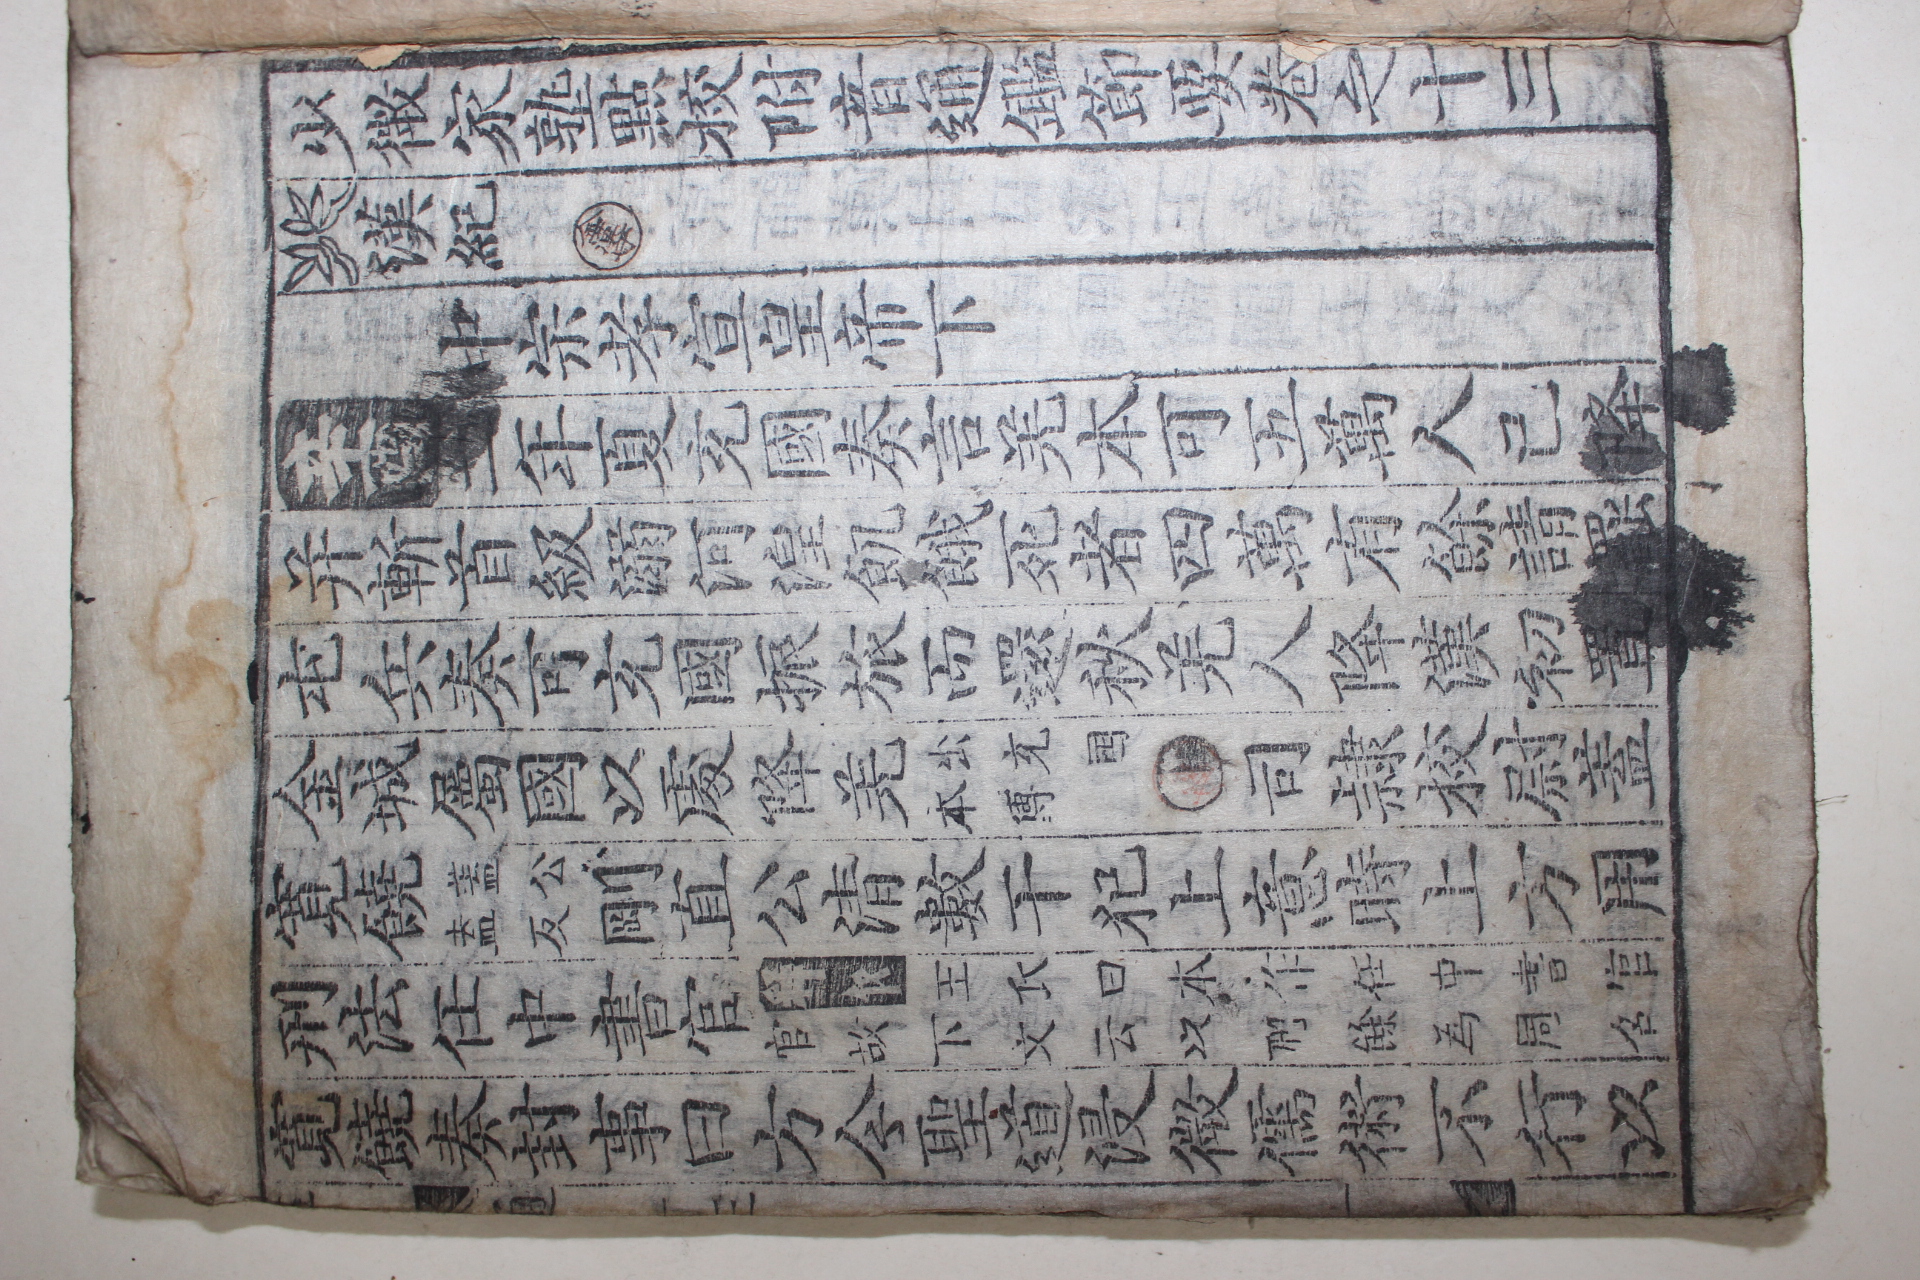 少微家塾點校附音通鑑節要卷之十三
漢紀
中宗孝宣皇帝下
辛酉二年夏充國奏言羌本可五萬人已降
幷斬首級溺河湟飢餓死者四萬有餘請罷
屯兵奏可充國振旅而還秋羌人降漢初置
金城屬國以處降羌 出充国本傳 司隷校尉蓋
寬饒 蓋公盍反 剛直公清數干犯上意時上方用
刑法任中書官 王氏曰本作任中書宦官故下文云以刑餘為周召
寬饒奏封事曰方今聖道浸微儒術不行以